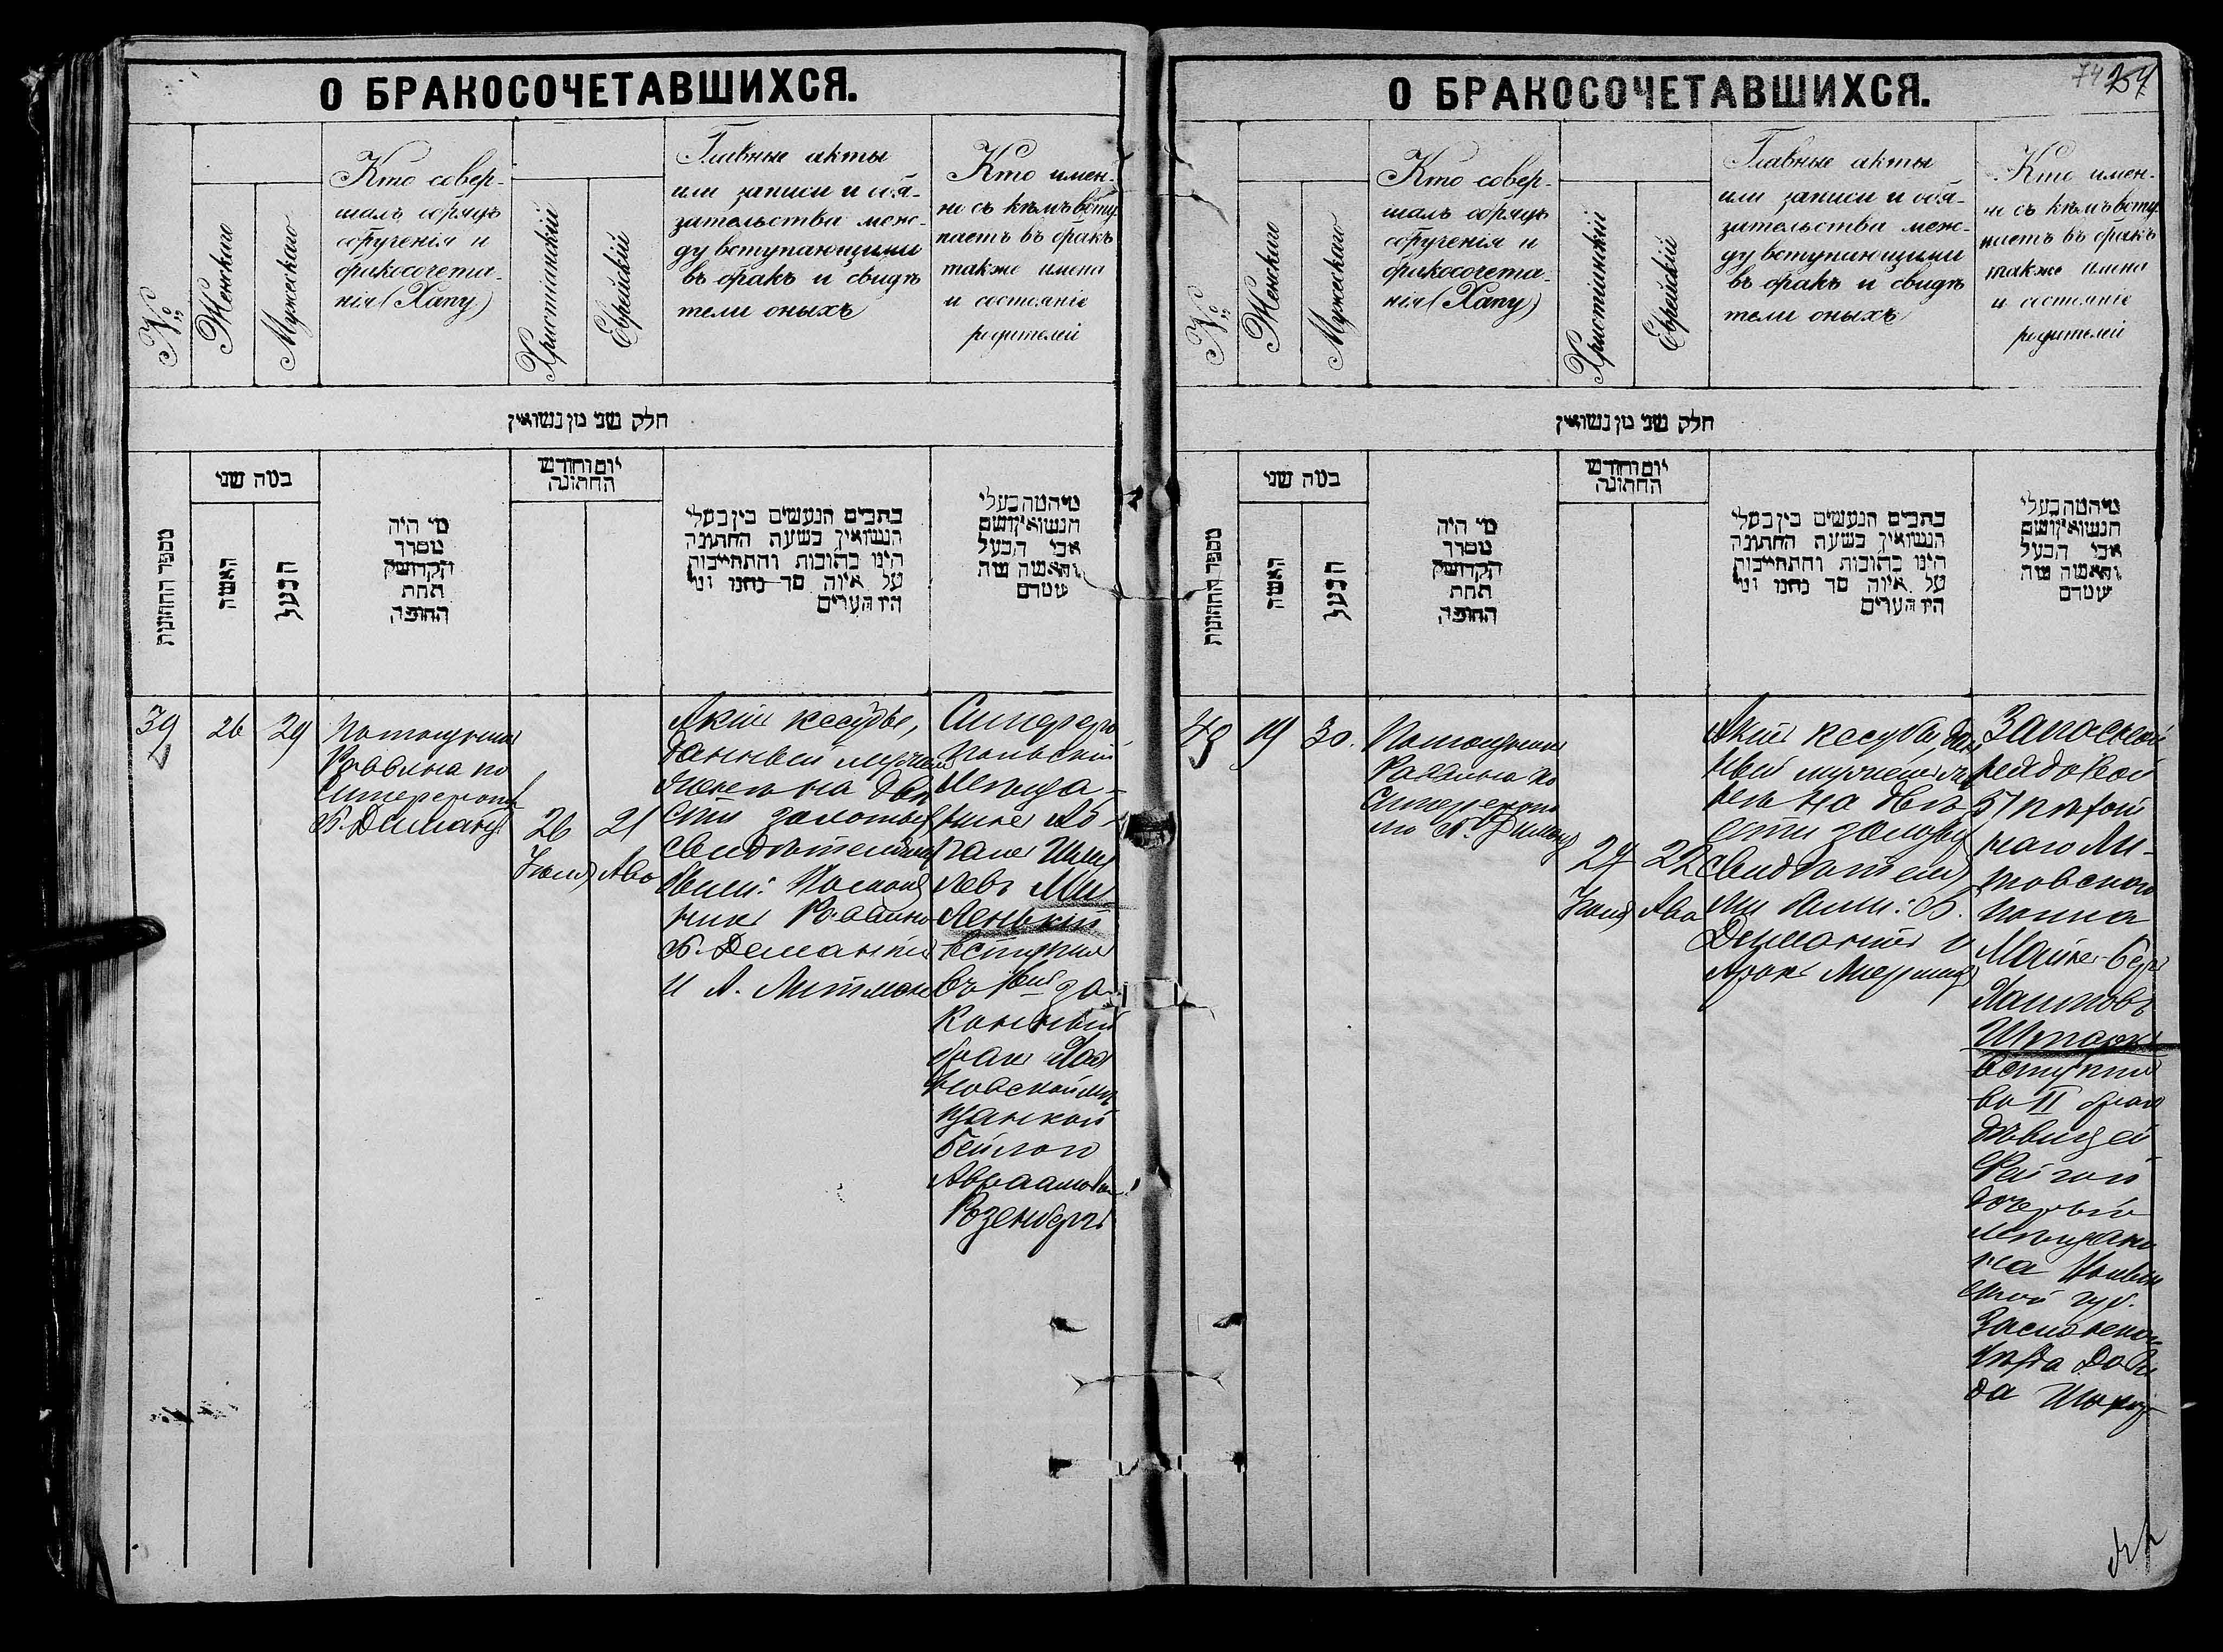 О БРАКОСОЧЕТАВШИХСЯ.
№
Женскаго
Мужескаго
Кто совер-
шалъ обрядъ
обрученія и
бракосочета-
нія (Хапу)
Христіанскій
Еврейскій
Главные акты
или записи и обя-
зательства меж-
ду вступающими
въ бракъ и свидѣ
тели оныхъ
Кто имен-
но съ кѣмъ всту
паетъ въ бракъ
также имена
и состояніе
родителей
חלק שני מן נשואין
מספר החתונות
במה שני
האשה
הבעל
מי היה
מסדר
הקדושין
תחת
החופה
יום וחודש
החתונה
כתבים הנעשים בין בעלי
הנשואין בשעת החתונה
היינו כתובות והתחייבות
על איזה סך נתנו ומי
היו הערים
מי המה בעלי
הנשואין ושם
אבי הבעל
והאשה מה
שמם
39
26
29
Помощникъ
Раввина по
Симфероп
Б. Диманд
26
Іюля
21
Ава
Актъ кесубы,
данный мужемъ
женѣ на двѣ
сти золотых
свидѣтелями
были: Помощ
никъ Раввина
Б. Деманти
и А. Литман
Симферо
польскій
мѣща-
нинъ
Шму
левъ Ми
ленькій
вступил
въ 1ый за
конный
бракъ
новской мѣ
щанкой
Бейлой
Авраамовн
Розенбергъ
О БРАКОСОЧЕТАВШИХСЯ.
74 254
№
Женскаго
Мужескаго
Кто совер-
шалъ обрядъ
обрученія и
бракосочета-
нія (Хапу)
Христіанскій
Еврейскій
Главные акты
или записи и обя-
зательства меж-
ду вступающими
въ бракъ и свидѣ
тели оныхъ
Кто имен-
но съ кѣмъ всту-
паетъ въ бракъ
также имена
и состояніе
родителей
חלק שני מן נשואין
מספר החתונות
במה שני
האשה
הבעל
מי היה
מסדר
הקדושין
תחת
החופה
יום וחודש
החתונה
כתבים הנעשים בין בעלי
הנשואין בשעת החתונה
היינו כתובות והתחייבות
על איזה סך נתנו ומי
היו הערים
מי המה בעלי
הנשואין ושם
אבי הבעל
והאשה מה
שמם
40
19
30.
Помощникъ
Раввина по
Симферопо
лю Б. Диманд
27
Іюля
22
Ава
Актъ кесубы, дан
ный мужемъ же
нѣ на двѣ
сти золотых
свидѣтеля
ми были: Б.
Димантъ и
Аронъ
Запасный
рядовой
57 пѣхот
наго Ли-
товскаго
полка
Майе-Беръ
Хаимовъ
Штаркъ
вступил
во II бракъ
дѣвицей
Фейгой
дочерью
мѣщани
на Волын
ской губ.
Заславскаго
уѣзда Дави
да